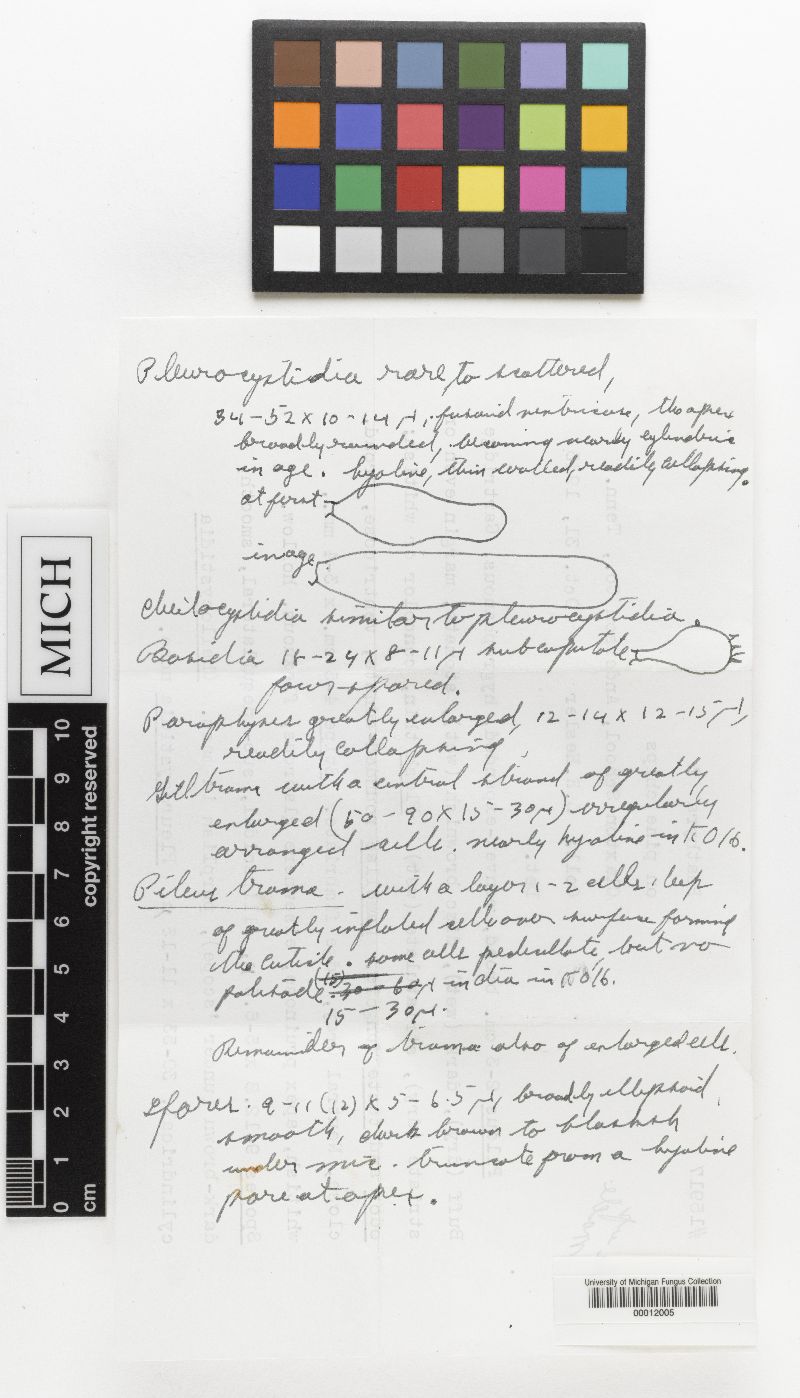 Pleurocystidia rare to scattered,
34-52 x 10-14 μ, fusoid ventricose, the apex
broadly rounded, becoming nearly cylindric
in age. hyaline, thin walled, readily collapsing.
at first
in age
Cheilocystidia similar to pleurocystidia.
Basidia 18-24 x 8-11 μ subcapitate
four-spored.
Paraphyses greatly enlarged, 12-14 x 12-15 μ,
readily collapsing,
Gill trama with a central strand of greatly
enlarged (50-90 x 15-30 μ) irregularly
arranged cells. nearly hyaline in KOH.
Pileus trama - with a layer 1-2 cells deep
of greatly inflated cells over surface forming
the cuticle. some cells pedicellate, but no
palisade. (15) 30-60 μ in dia in KOH.
15-30 μ.
Remainder of trama also of enlarged cells.
Spores. 9-11 (12) x 5-6.5 μ, broadly ellipsoid,
smooth, dark brown to blackish
under mic. truncate from a hyaline
pore at apex.
MICH
copyright reserved
0 1 2 3 4 5 6 7 8 9 10
cm
University of Michigan Fungus Collection
00012005